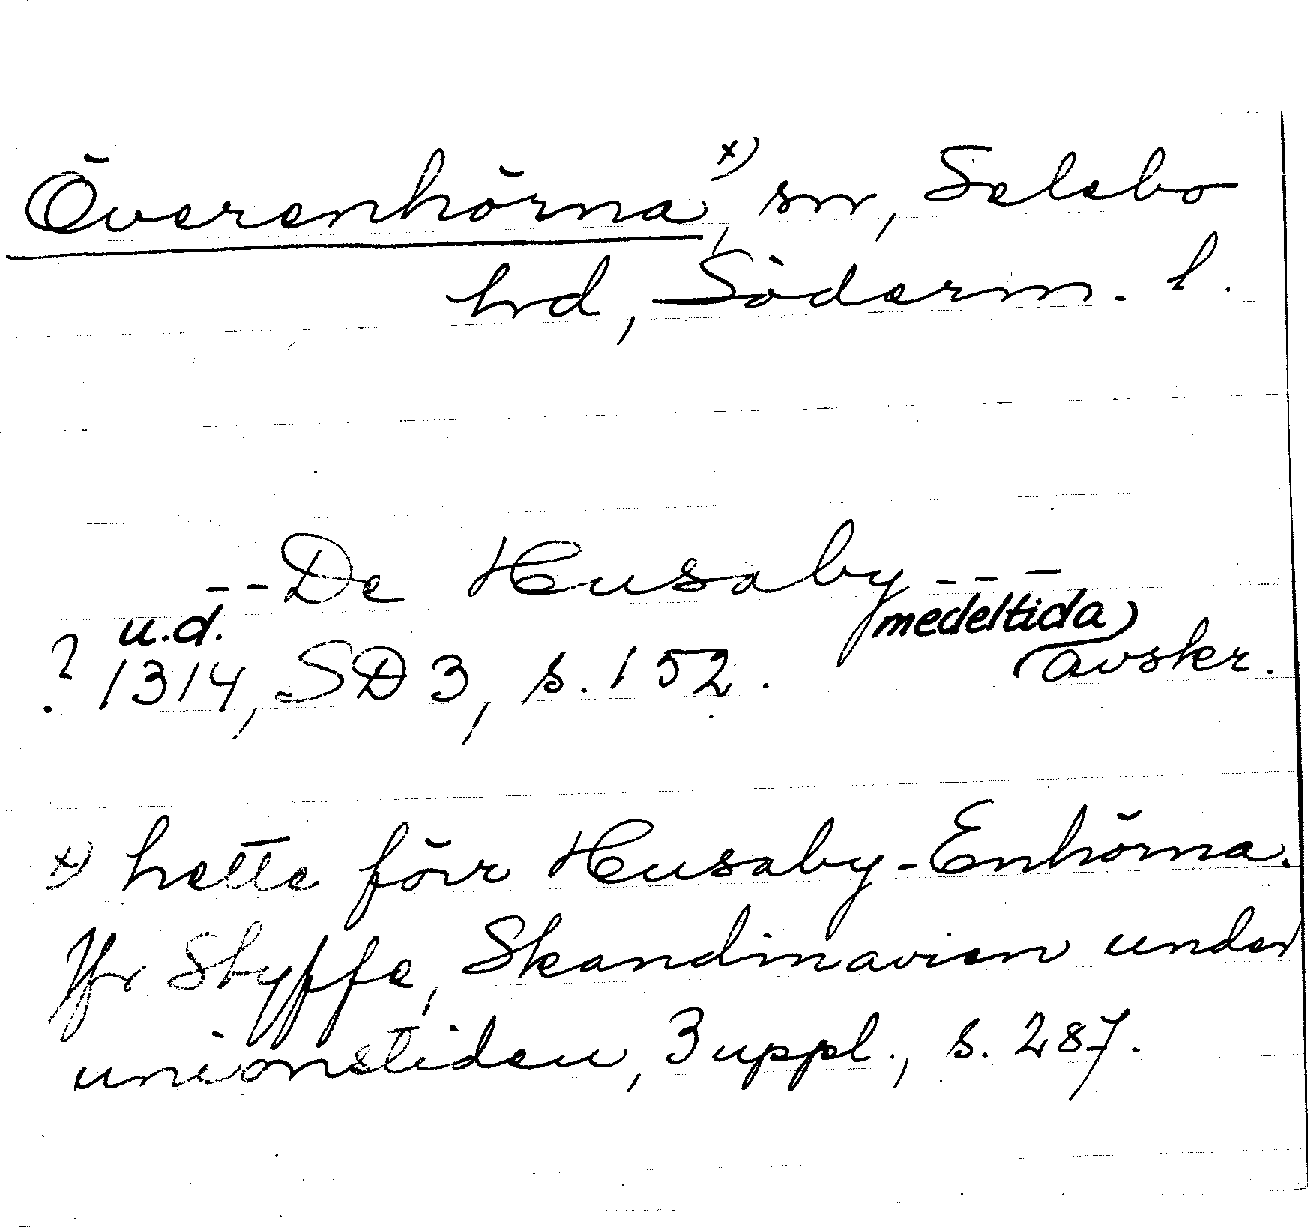 Överenhörna x), sn, Selebo
hd, Söderm. l.
-- De Husaby ---
u.d. medeltida
? 1314, SD 3, s. 152. avskr.
x) hette förr Husaby-Enhörna.
Jfr Styffe, Skandinavien under
unionstiden, 3 uppl., s. 287.